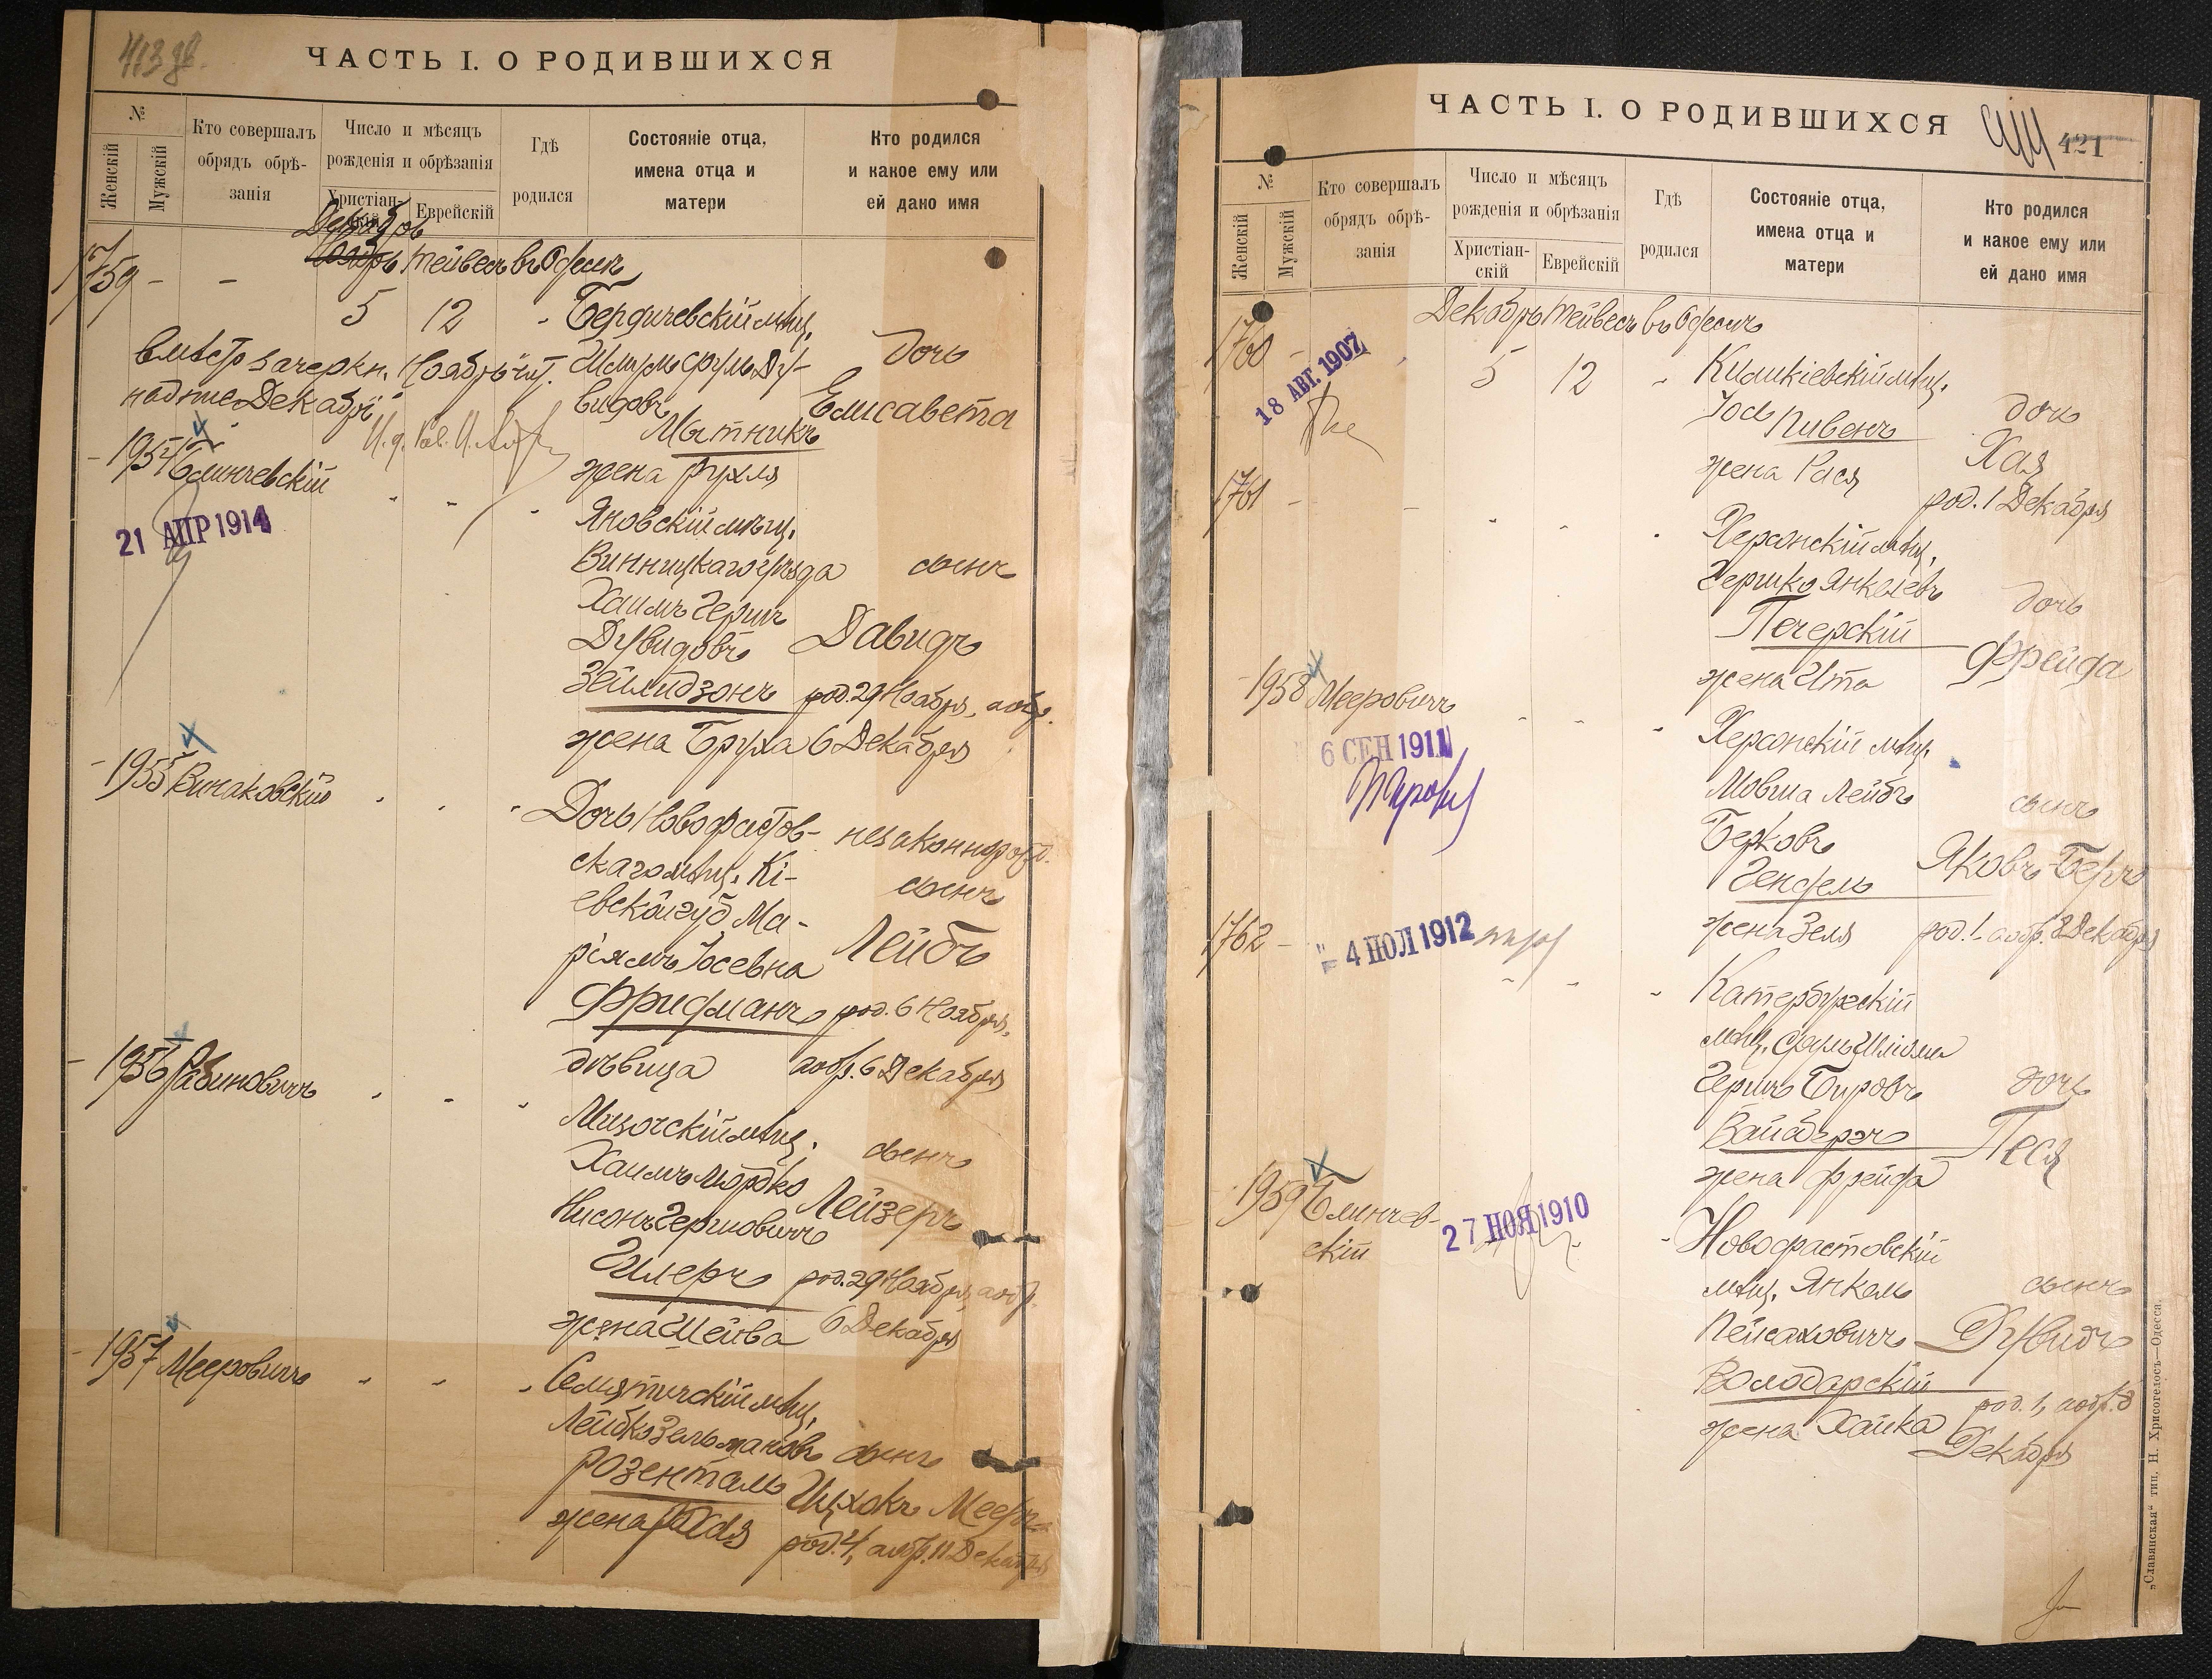 413 об.
ЧАСТЬ I. О РОДИВШИХСЯ
№
Женскій
Мужскій
Кто совершалъ обрядъ обрѣ-
занія
Число и мѣсяцъ
рожденія и обрѣзанія
Христіан-
скій
Еврейскій
Гдѣ
родился
Состояніе отца,
имена отца и
матери
Кто родился
и какое ему или
ей дано имя
Декабрь
Ноябрь Тейвесъ въ Одессѣ
1759 - -
5 12 - Бердичевскій мѣщ.
вмѣсто зачеркн. Ноябрь чит.
надписъ Декабрь
Шлумъ Сруль Ду-
видовъ
Мытникъ
жена Рухля
дочь
Елисавета
- 1954 Блинчевскій
21 АПР 1914
Яновскій мѣщ.
Винницкаго уѣзда
Хаимъ Гершъ
Дувидовъ
Зейлидзонъ
жена Бруха
сынъ
Давидъ
род. 29 Ноября, а обр.
6 Декабря
- 1955 Винаковскій
Дочь Новофастов-
скаго мѣщ. Кі-
евской губ. Ма-
ріямъ Іосевна
Фридманъ
дѣвица
незаконнорожд.
сынъ
Лейбъ
род. 6 Ноября,
а обр. 6 Декабря
- 1956 Рабиновичъ
Мизочскій мѣщ.
Хаимъ Мордко
Нисонъ Гершковичъ
Гилеръ
жена Шейва
сынъ
Лейзеръ
род. 29 Ноября, а обр.
6 Декабря
- 1957 Мееровичъ
Семятичскій мѣщ.
Лейбко Зельмановъ
Розенталь
жена Хая
сынъ
Ицхокъ Мееръ
род. 4, а обр. 11 Декабря
ЧАСТЬ I. О РОДИВШИХСЯ
414 421
№
Женскій
Мужскій
Кто совершалъ
обрядъ обрѣ-
занія
Число и мѣсяцъ
рожденія и обрѣзанія
Христіан-
скій
Еврейскій
Гдѣ
родился
Состояніе отца,
имена отца и
матери
Кто родился
и какое ему или
ей дано имя
Декабрь Тейвесъ въ Одессѣ
1760 -
18 АВГ. 1907
5 12 - Кишкіевскій мѣщ.
Іось Пивень
жена Рася
дочь
Хая
род. 1 Декабря
1761 - -
Херсонскій мѣщ.
Гершко Янкелевъ
Печерскій
жена Ита
дочь
Фрейда
- 1958 Мееровичъ
6 СЕН 1911
Херсонскій мѣщ.
Мовша Лейбъ
Берковъ
Гендель
жена Зеля
сынъ
Яковъ-Беръ
род. 1, а обр. 8 Декабря
1762 -
4 ІЮЛ 1912
Катербургскій
мѣщ. Сруль Шлиома
Гершъ Бировъ
Вайсбергъ
жена Фрейда
дочь
Песя
- 1959 Блинчев-
скій
27 НОЯ 1910
Новофастовскій
мѣщ. Янкель
Пейсаховичъ
Володарскій
жена Хайка
сынъ
Дувидъ
род. 1, а обр. 8
Декабря
„Славянская“ тип. Н. Хрисогелосъ—Одесса.